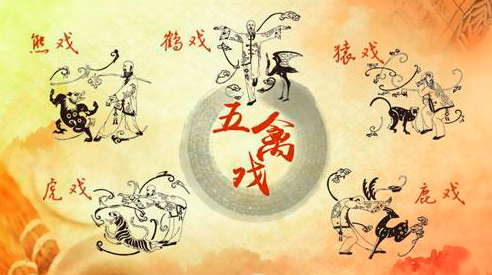 熊戏
鹤戏
猿戏
五禽戏
虎戏
鹿戏